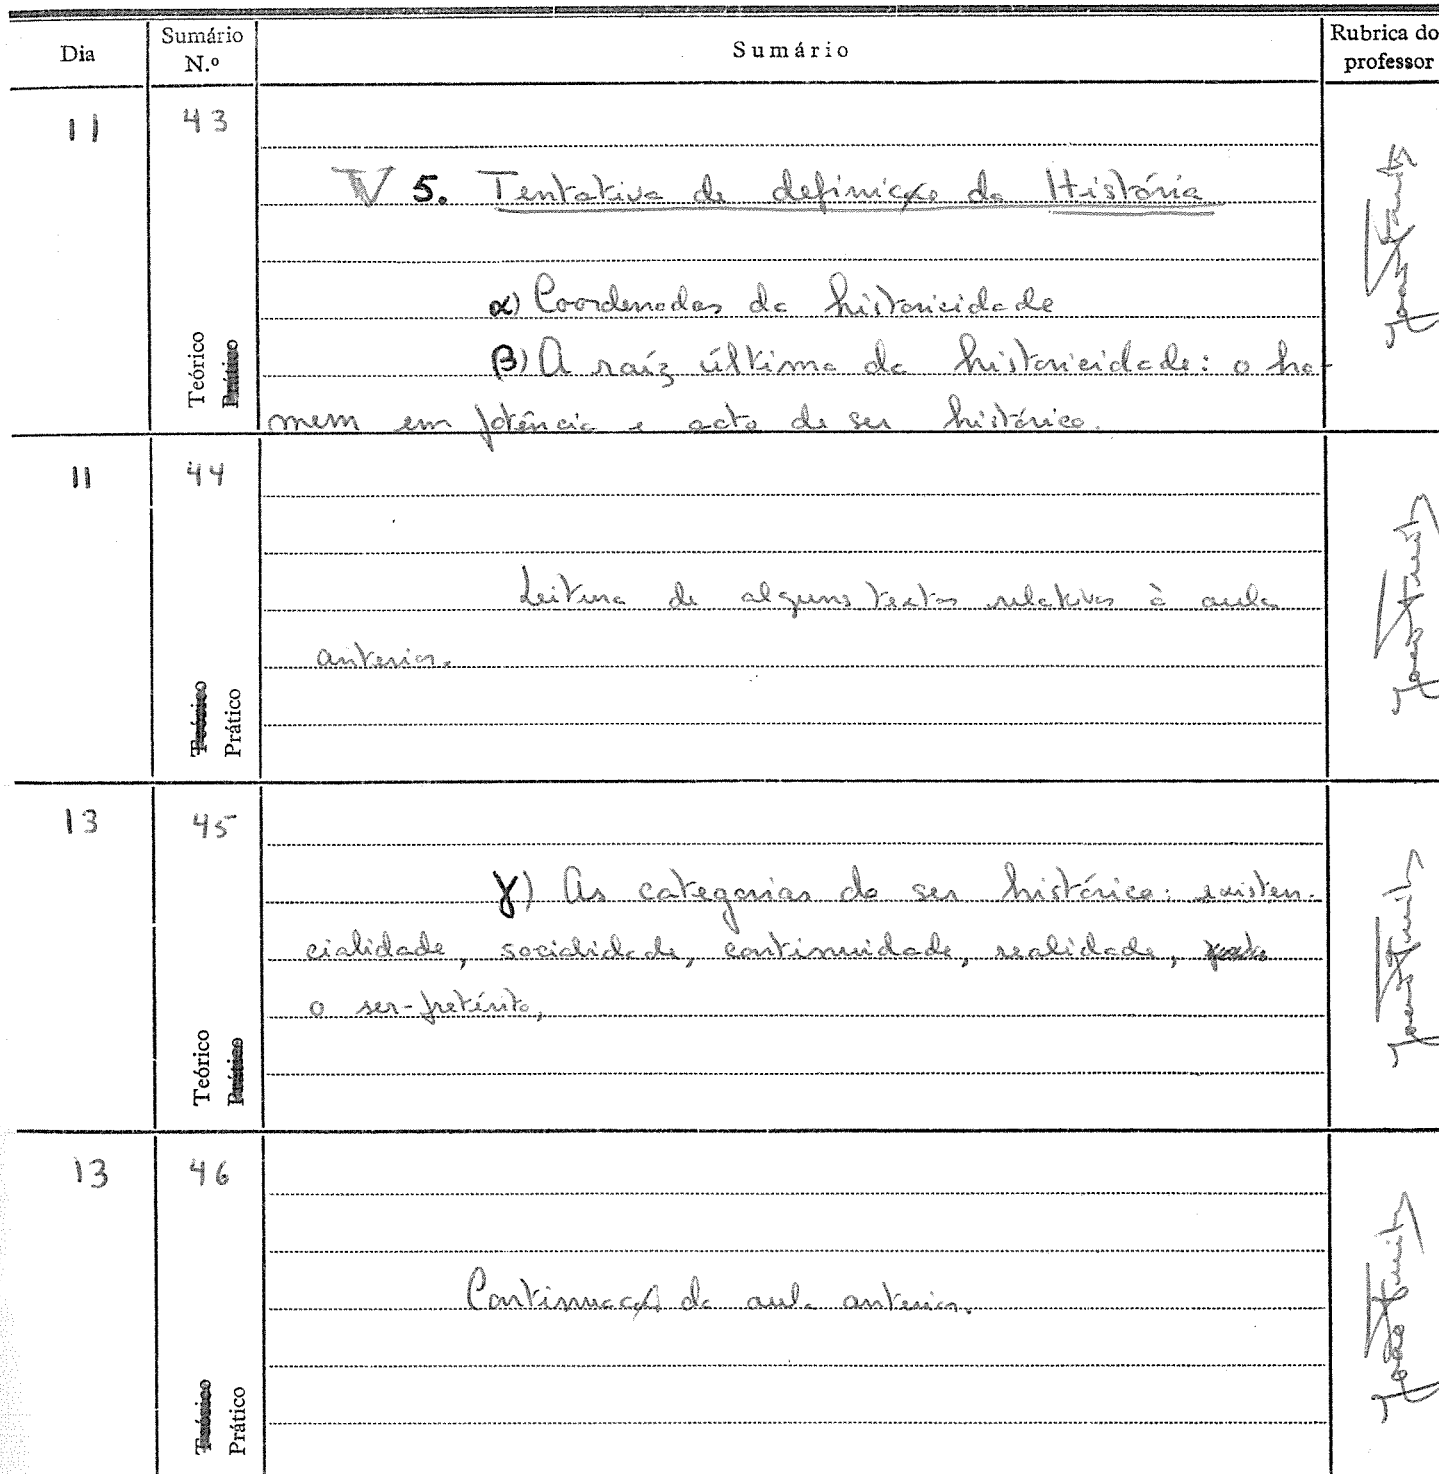 Dia
Sumário
N.º
Sumário
Rubrica do
professor
11
43
V 5. Tentativa de definição da História
α) Coordenadas da historicidade
β) A raíz última da historicidade: o ho-
mem em potência e acto de ser histórico.
Teórico
Prático
11
44
Leitura de alguns textos relativos à aula
anterior.
Teórico
Prático
13
45
γ) As categorias do ser histórico: existen-
cialidade, socialidade, continuidade, realidade,
o ser-pretérito,
Teórico
Prático
13
46
Continuação da aula anterior.
Teórico
Prático